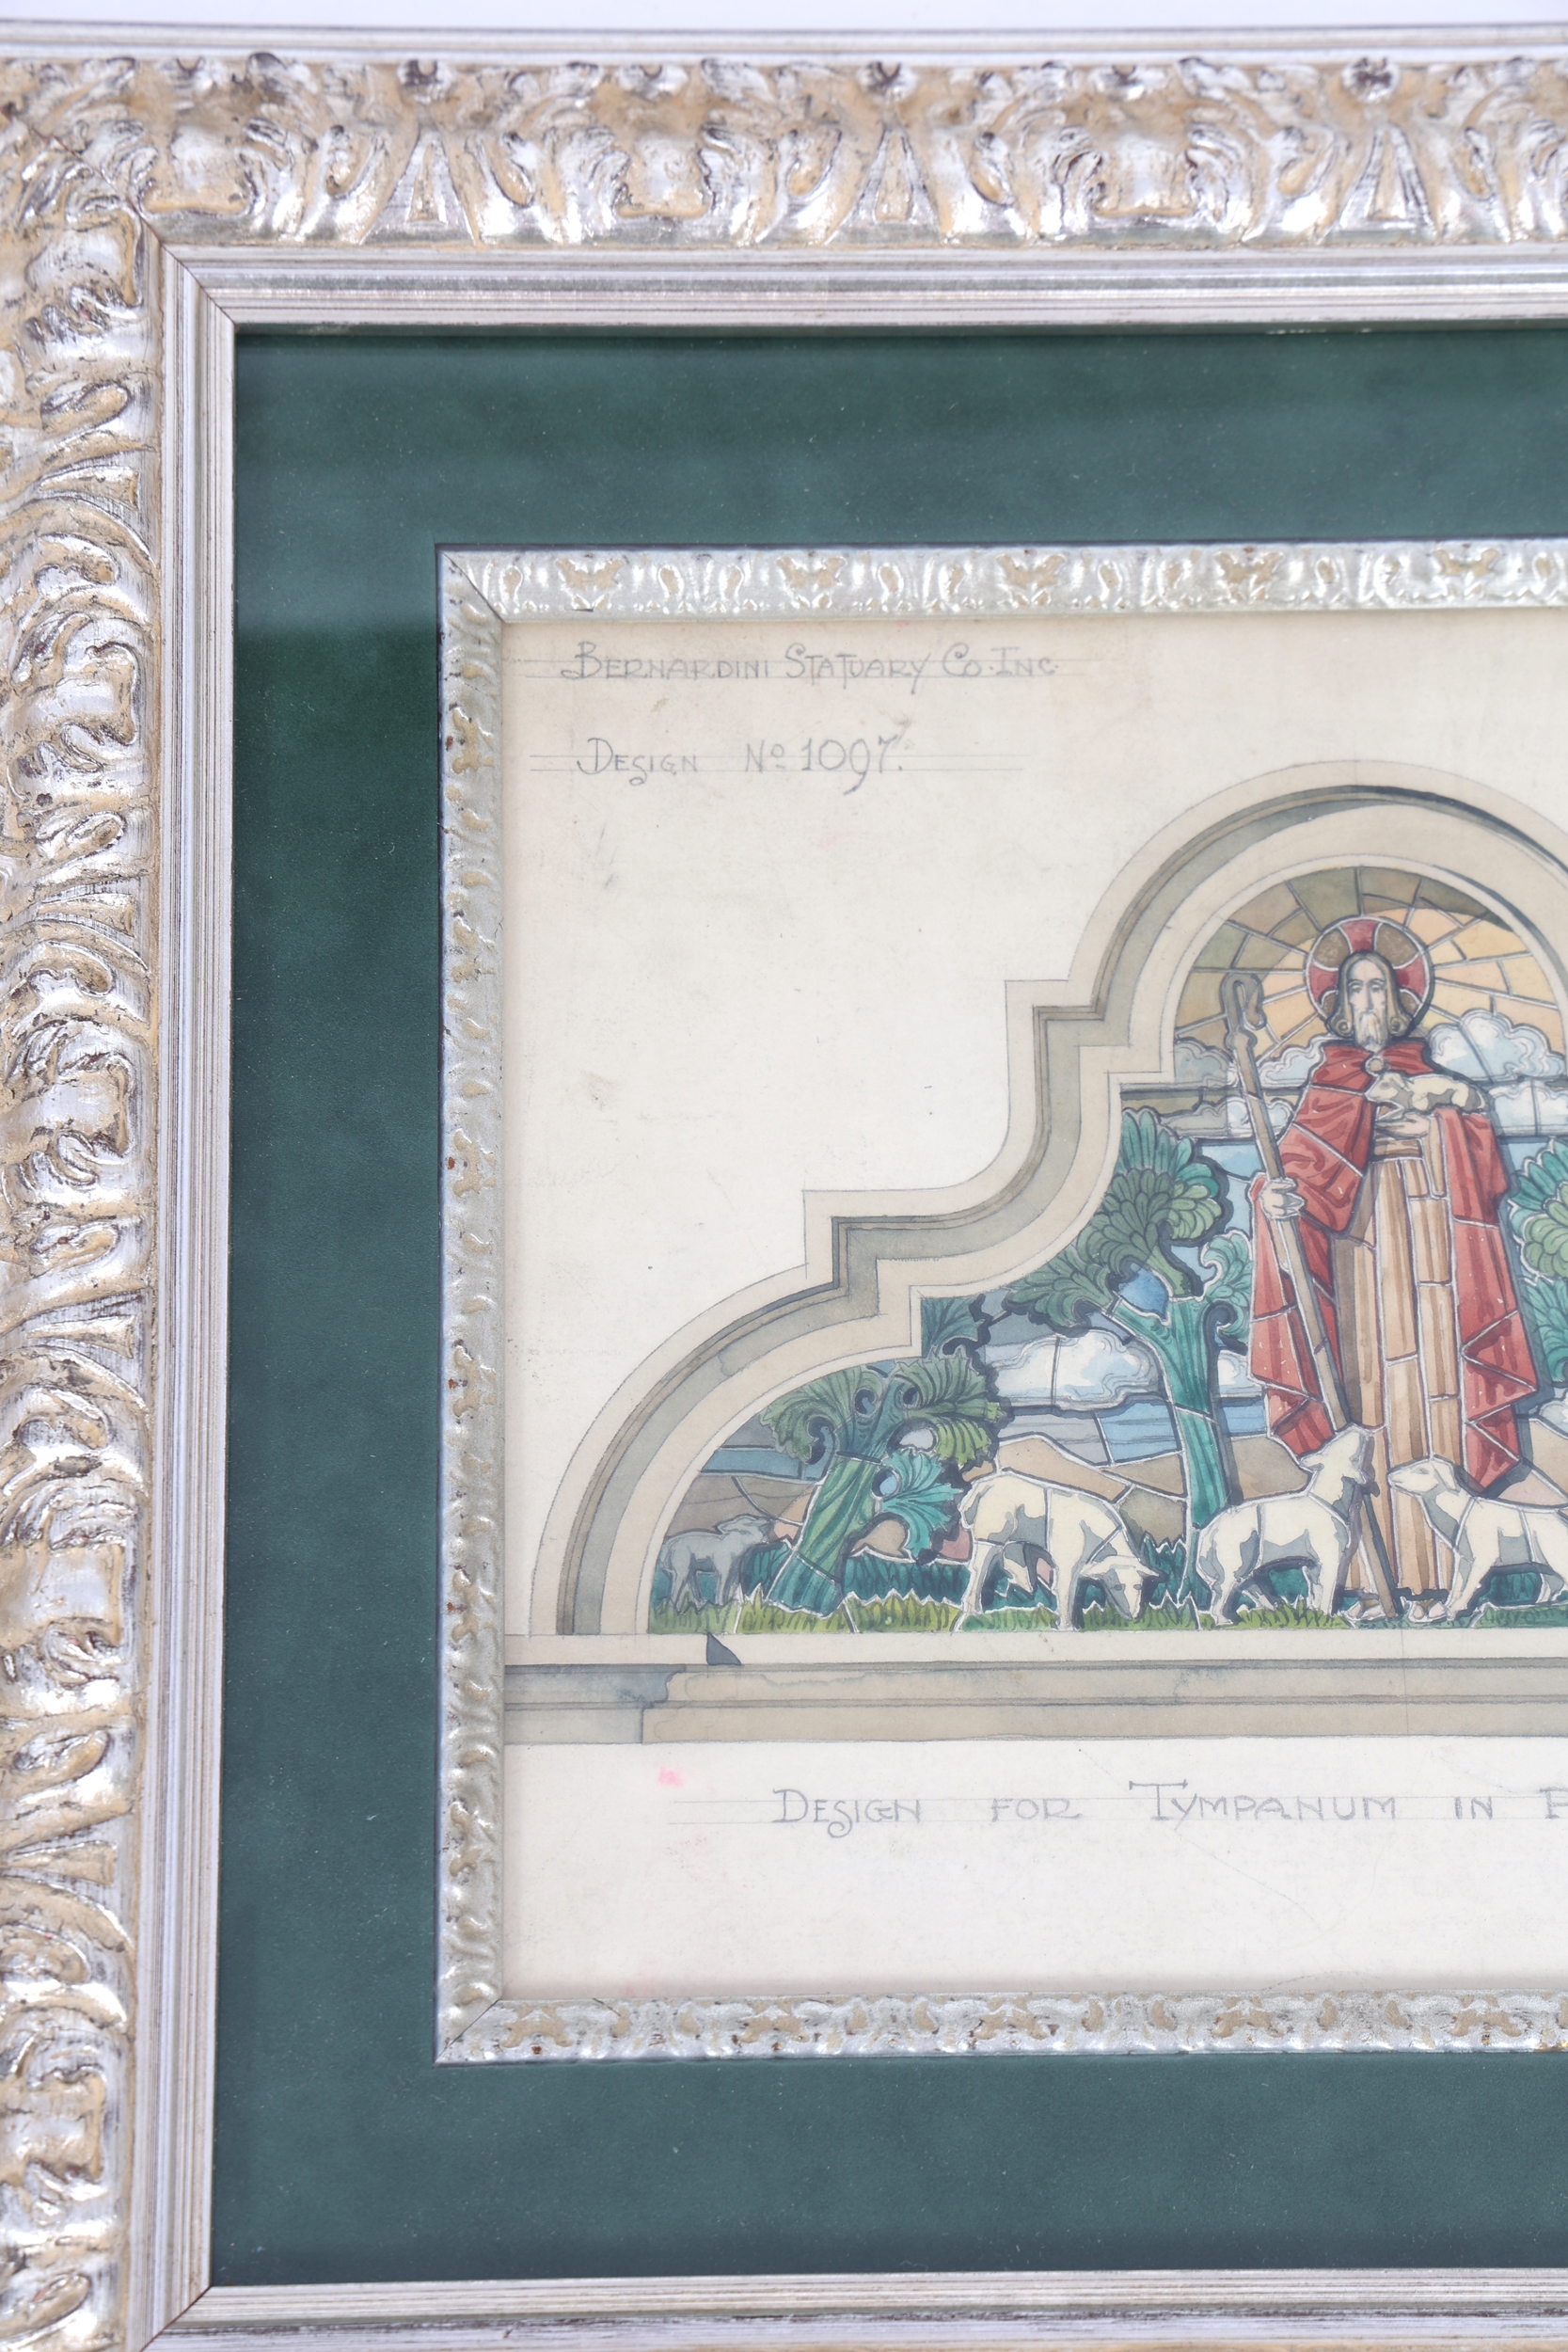 Bernardini Statuary Co. Inc.
Design No 1097.
Design for Tympanum in